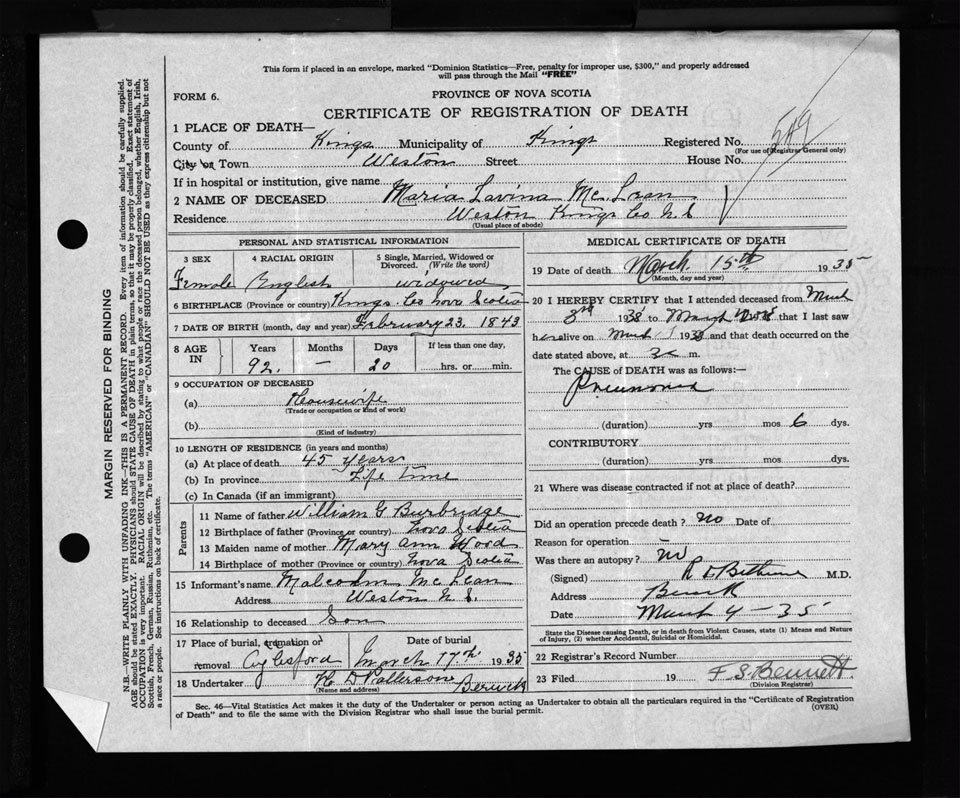 This form if placed in an envelope, marked "Dominion Statistics—Free, penalty for improper use, $300," and properly addressed
will pass through the Mail "FREE"
FORM 6.
PROVINCE OF NOVA SCOTIA
CERTIFICATE OF REGISTRATION OF DEATH
1 PLACE OF DEATH—
County of Kings Municipality of Kings Registered No. 549
(For use of Registrar General only)
City or Town Weston Street House No.
If in hospital or institution, give name
2 NAME OF DECEASED Maria Lavina McLean
Residence Weston Kings Co N.S
(Usual place of abode)
PERSONAL AND STATISTICAL INFORMATION
3 SEX 4 RACIAL ORIGIN 5 Single, Married, Widowed or Divorced. (Write the word)
Female English widowed
6 BIRTHPLACE (Province or country) Kings Co Nova Scotia
7 DATE OF BIRTH (month, day and year) February 23, 1843
8 AGE IN Years Months Days If less than one day,
92. — 20 hrs. or min.
9 OCCUPATION OF DECEASED
(a) Housewife
(Trade or occupation or kind of work)
(b)
(Kind of industry)
10 LENGTH OF RESIDENCE (in years and months)
(a) At place of death 45 years
(b) In province Life time
(c) In Canada (if an immigrant)
Parents
11 Name of father William G Burbridge
12 Birthplace of father (Province or country) Nova Scotia
13 Maiden name of mother Mary Ann Wood
14 Birthplace of mother (Province or country) Nova Scotia
15 Informant's name Malcolm McLean
Address Weston N.S.
16 Relationship to deceased Son
17 Place of burial, cremation or removal Aylesford Date of burial March 17th 1935
18 Undertaker H D Patterson Berwick
(Name and address)
MEDICAL CERTIFICATE OF DEATH
19 Date of death March 15th 1935
(Month, day and year)
20 I HEREBY CERTIFY that I attended deceased from March
3rd 19 to that I last saw
her alive on March 19 and that death occurred on the
date stated above, at m.
The CAUSE of DEATH was as follows:—
Pneumonia
(duration) yrs mos 6 dys.
CONTRIBUTORY
(duration) yrs mos dys.
21 Where was disease contracted if not at place of death?
Did an operation precede death? no Date of
Reason for operation
Was there an autopsy? no
(Signed) R D Bethune M.D.
Address Berwick
Date March 4 - 35
State the Disease causing Death, or in death from Violent Causes, state (1) Means and Nature
of Injury, and (2) whether Accidental, Suicidal or Homicidal.
22 Registrar's Record Number
23 Filed 19 F S. Bennett
(Division Registrar)
Sec. 46—Vital Statistics Act makes it the duty of the Undertaker or person acting as Undertaker to obtain all the particulars required in the "Certificate of Registration
of Death" and to file the same with the Division Registrar who shall issue the burial permit. (OVER)
MARGIN RESERVED FOR BINDING
N.B.—WRITE PLAINLY WITH UNFADING INK—THIS IS A PERMANENT RECORD. Every item of information should be carefully supplied.
AGE should be stated EXACTLY. PHYSICIANS should STATE CAUSE OF DEATH in plain terms, so that it may be properly classified. Exact statement of
OCCUPATION is very important. RACIAL ORIGIN will be described by stating to what people or race the deceased person belonged, whether English, Irish,
Scottish, French, German, Russian, Ruthenian, etc. The terms "AMERICAN" or "CANADIAN" SHOULD NOT BE USED as they express citizenship but not
a race or people. See instructions on back of certificate.